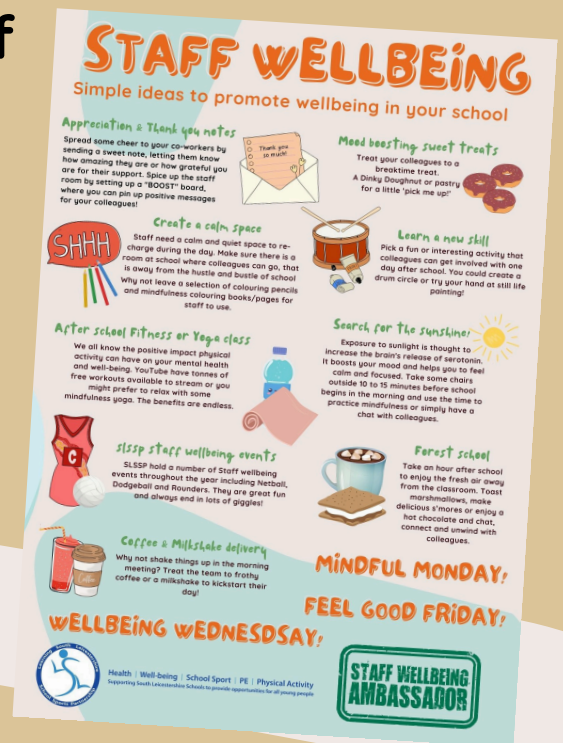 f
STAFF WELLBEING
Simple ideas to promote wellbeing in your school
Appreciation & Thank you notes
Spread some cheer to your co-workers by
sending a sweet note, letting them know
how amazing they are or how grateful you
are for their support. Spice up the staff
room by setting up a "BOOST" board,
where you can pin up positive messages
for your colleagues!
Thank you
so much!
Mood boosting sweet treats
Treat your colleagues to a
breaktime treat.
A Dinky Doughnut or pastry
for a little 'pick me up!'
SHHH
Create a calm space
Staff need a calm and quiet space to re-
charge during the day. Make sure there is a
room at school where colleagues can go, that
is away from the hustle and bustle of school
Why not leave a selection of colouring pencils
and mindfulness colouring books/pages for
staff to use.
Learn a new skill
Pick a fun or interesting activity that
colleagues can get involved with one
day after school. You could create a
drum circle or try your hand at still life
painting!
After school Fitness or Yoga class
We all know the positive impact physical
activity can have on your mental health
and well-being. YouTube have tonnes of
free workouts available to stream or you
might prefer to relax with some
mindfulness yoga. The benefits are endless.
Search for the sunshine!
Exposure to sunlight is thought to
increase the brain's release of serotonin.
It boosts your mood and helps you to feel
calm and focused. Take some chairs
outside 10 to 15 minutes before school
begins in the morning and use the time to
practice mindfulness or simply have a
chat with colleagues.
C
slssp staff wellbeing events
SLSSP hold a number of Staff wellbeing
events throughout the year including Netball,
Dodgeball and Rounders. They are great fun
and always end in lots of giggles!
Forest school
Take an hour after school
to enjoy the fresh air away
from the classroom. Toast
marshmallows, make
delicious s'mores or enjoy a
hot chocolate and chat,
connect and unwind with
colleagues.
Coffee
Coffee & Milkshake delivery
Why not shake things up in the morning
meeting? Treat the team to frothy
coffee or a milkshake to kickstart their
day!
MINDFUL MONDAY!
FEEL GOOD FRIDAY!
WELLBEING WEDNESDSAY!
Health | Well-being | School Sport | PE | Physical Activity
Supporting South Leicestershire Schools to provide opportunities for all young people
STAFF WELLBEING
AMBASSADOR